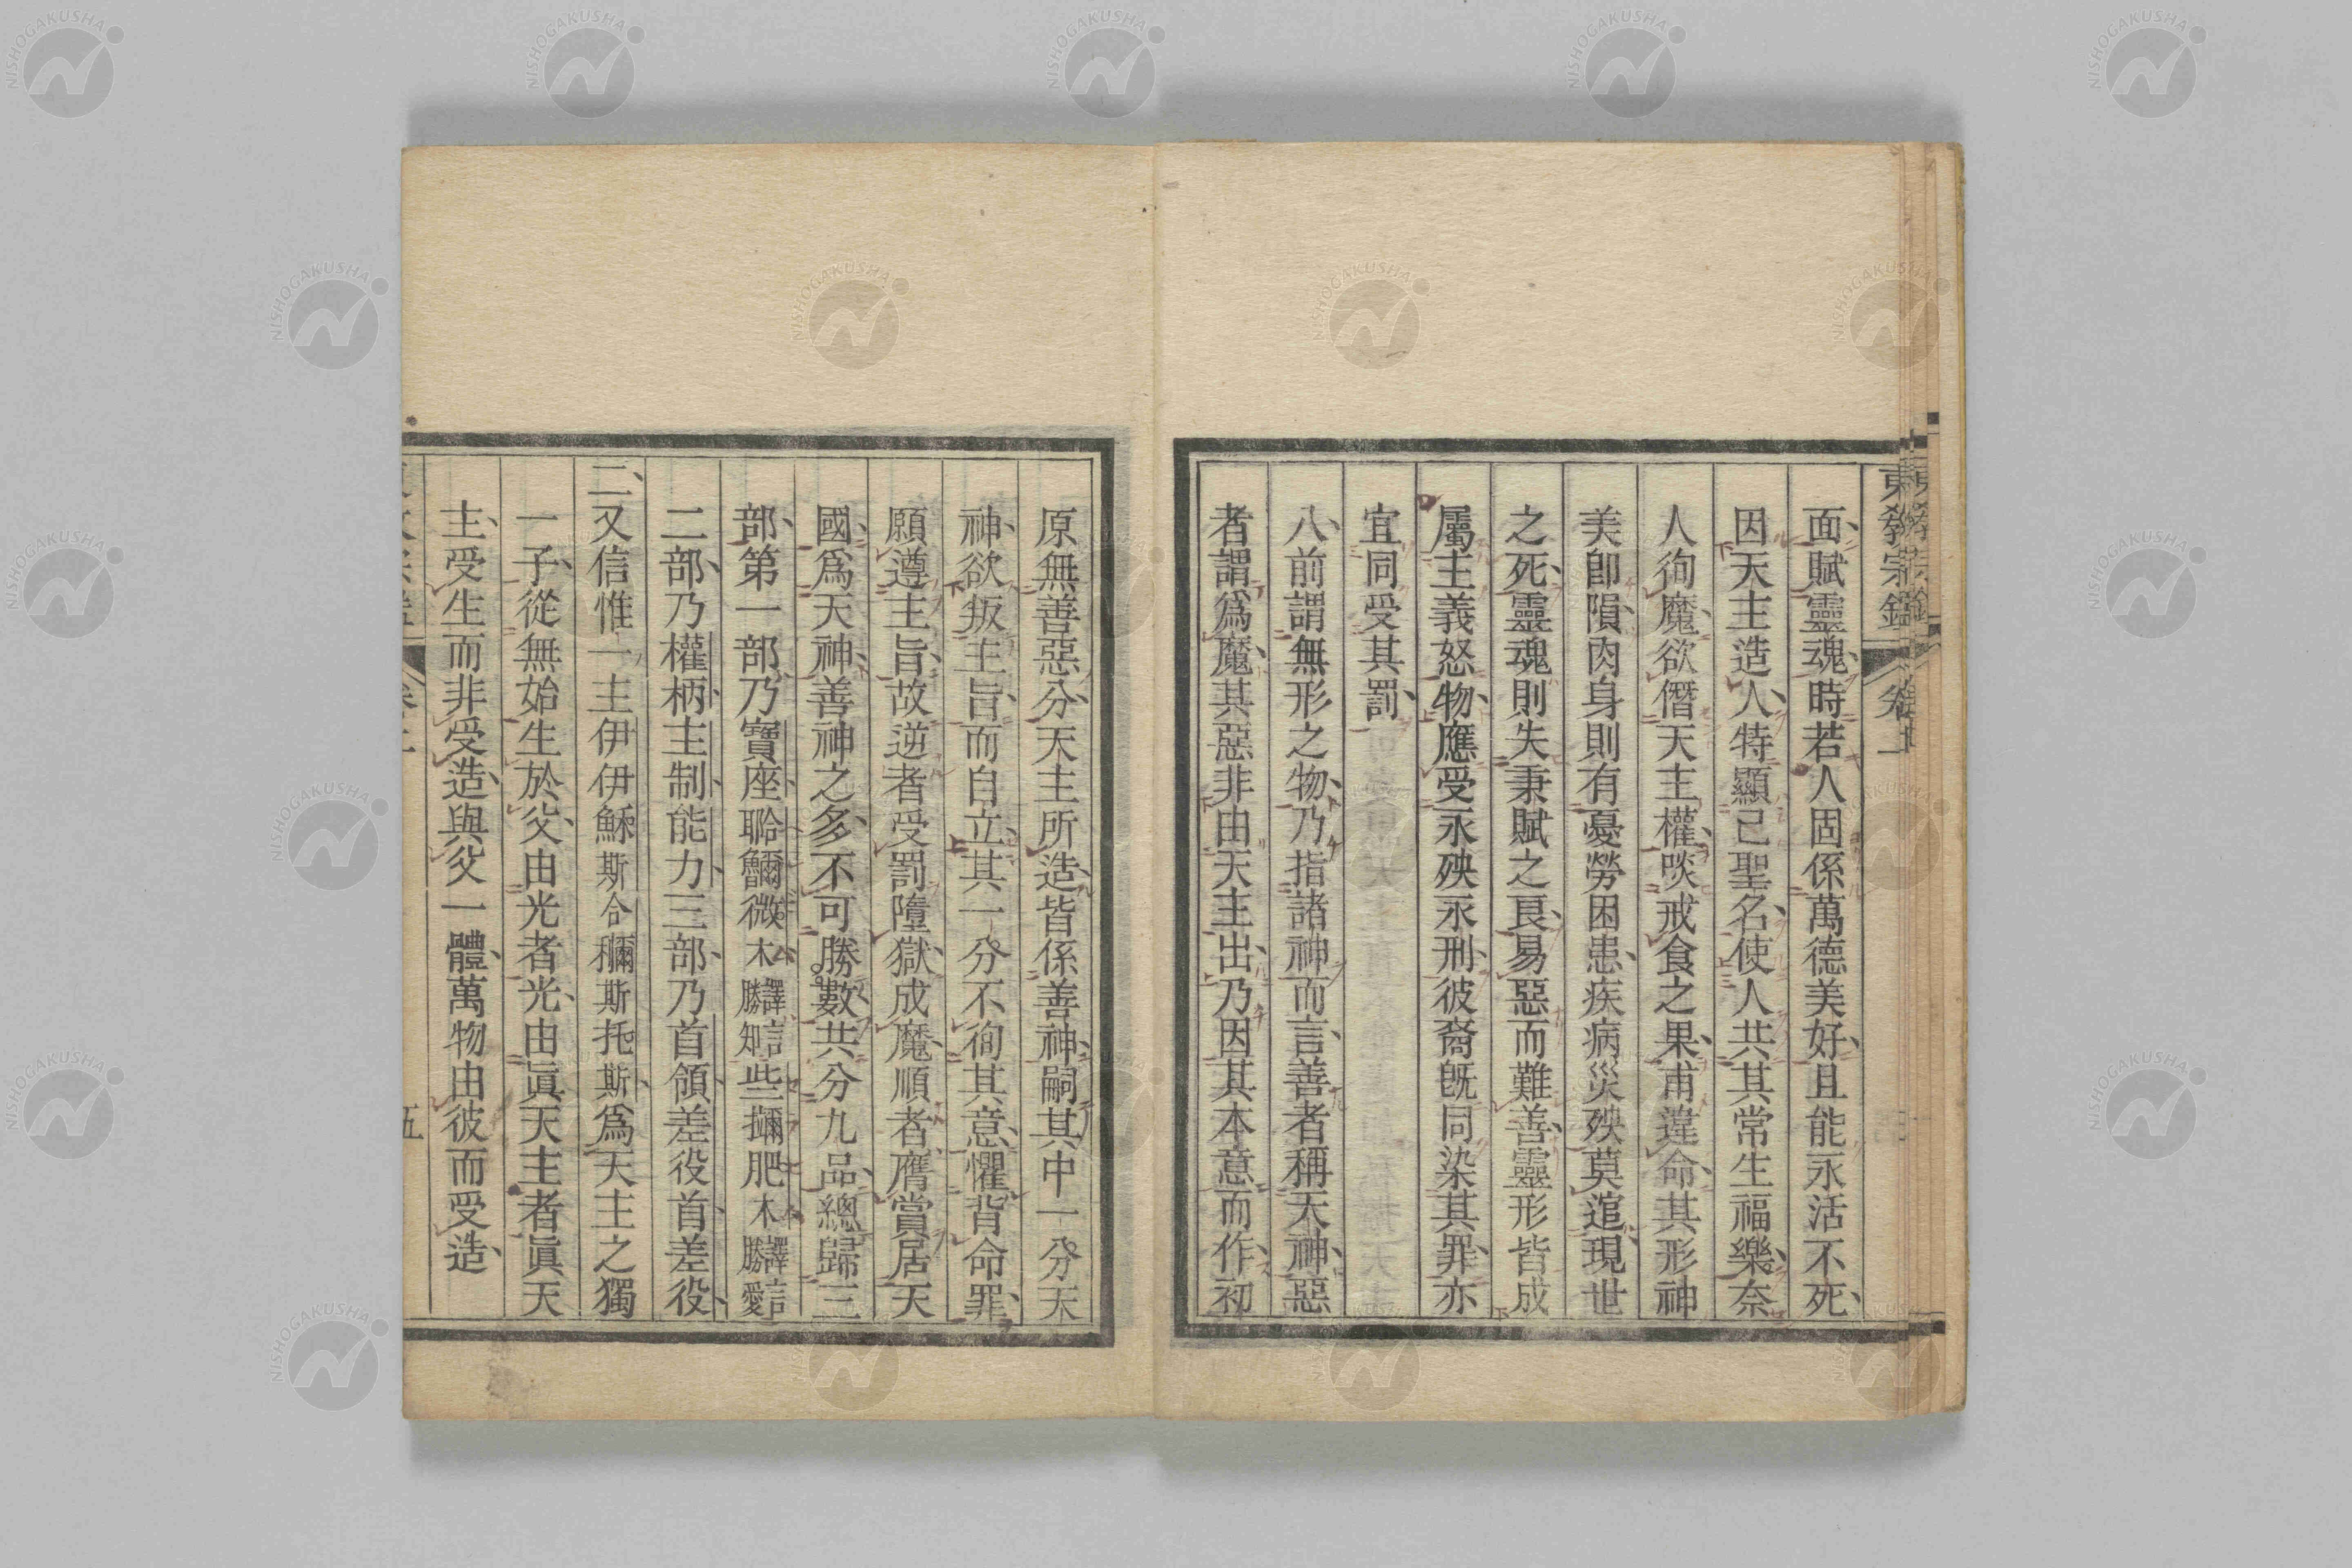 東教宗鑑
面、賦靈魂、時若人固係萬德美好、且能永活不死、
因天主造人、特顯己聖名、使人共其常生福樂、奈
人徇魔、欲僭天主權、啖戒食之果、甫違命、其形神
美卽隕、肉身則有憂勞困患、疾病災殃莫逭、現世
之死、靈魂則失秉賦之良、易惡而難善、靈形皆成
屬主義怒物、應受永殃永刑、彼裔旣同染其罪、亦
宜同受其罰、
八、前謂無形之物、乃指諸神而言、善者稱天神、惡
者謂爲魔、其惡非由天主出、乃因其本意而作、初
原無善惡分、天主所造、皆係善神、嗣其中一分天
神、欲叛主旨、而自立、其一分不徇其意、懼背命罪、
願遵主旨、故逆者受罰隨獄、成魔、順者、膺賞居天
國、爲天神、善神之多、不可勝數、共分九品、總歸三
部、第一部、乃寶座、聆鬺微木譯言勝知些擟肥木譯言勝愛
二部、乃權柄、主制、能力、三部、乃首領、差役首、差役、
二、又信惟一主伊伊穌斯合穪斯托斯、爲天主之獨
一子、從無始生於父、由光者光、由眞天主者眞天
主、受生而非受造、與父一體、萬物由彼而受造、
五
NISHOGAKUSHA